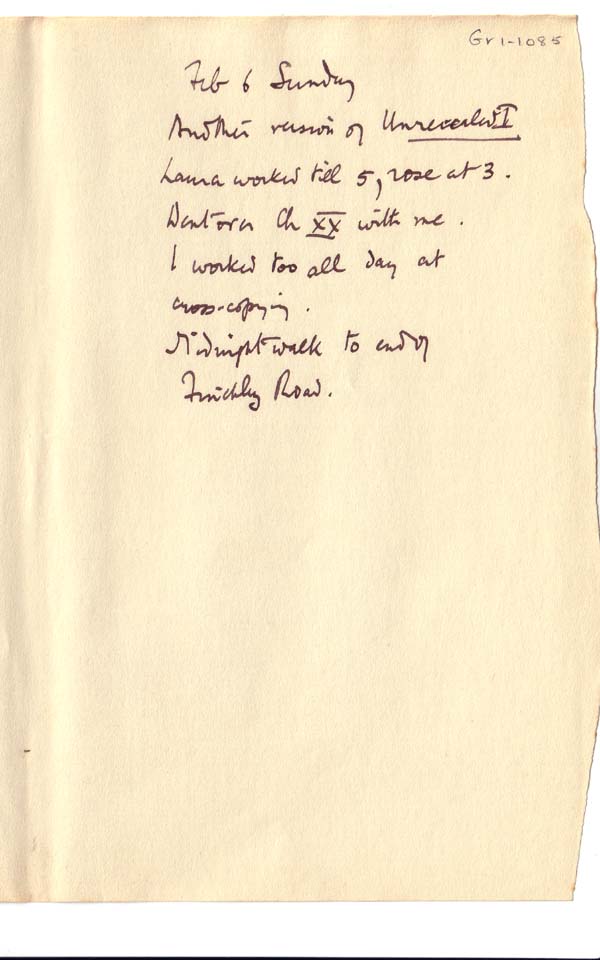 Gr1-1085
Feb 6 Sunday
Another version of Unrevealed I
Laura worked till 5, rose at 3.
Went over Ch XX with me.
I worked too all day at
cross-copying.
Midnight walk to end of
Finchley Road.